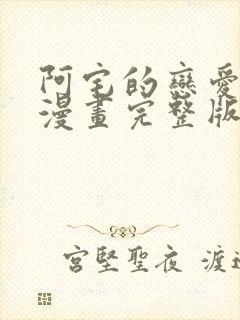 阿宅的戀愛
漫畫完整版
宮堅聖夜 渡邊